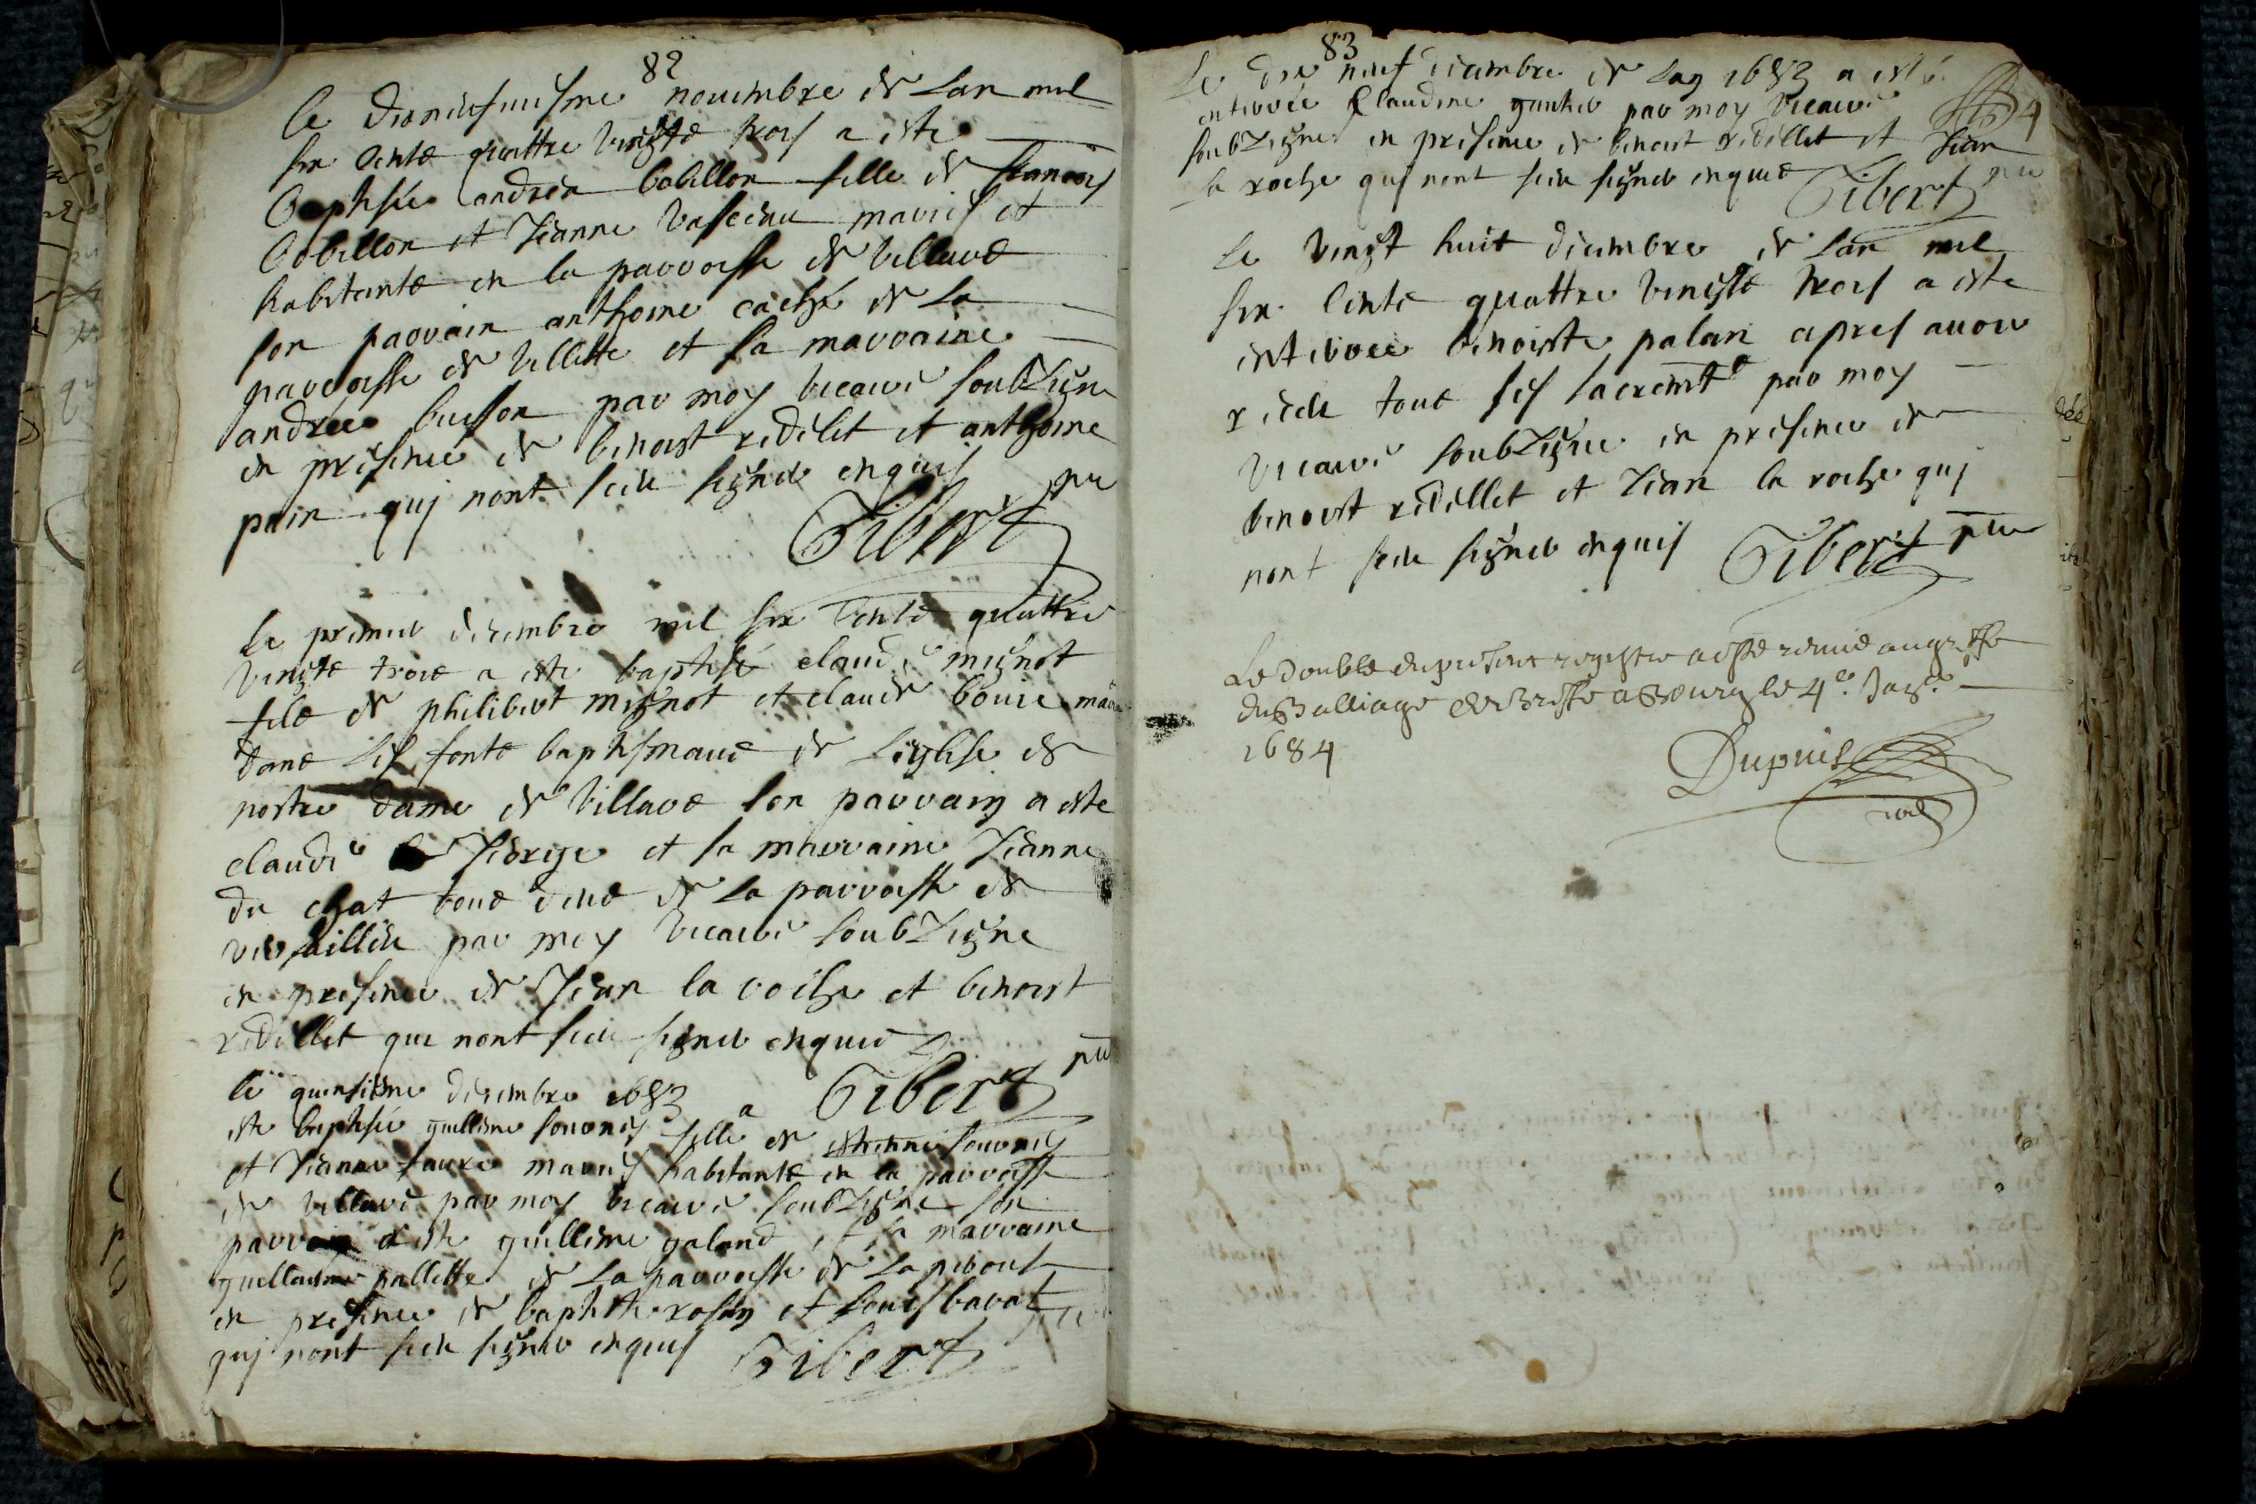 82
le dixneufuiesme nouembre de lan mil
six cents quattre vingts trois a este
baptisée andrea bobillon fille de francois
bobillon et Jeanne mariés et
habitants en la parroisse de villars
son parrain anthoine caché de la
parroisse de villette et sa marraine
andrée buisson par moy vicaire soubzigne
en presence de benoist redilet et anthoine
pain quj nont sceu signer enquis
Gibert pre
Le premier decembre mil six cents quattre
vingts trois a este baptisé claude mignot
fils de philibert mignot et claude bouie
dans les fonts baptismaus de leglise de
nostre dame de villars son parrain a este
claude George et sa marraine Jeanne
du chat tous deus de la parroisse de
versaillieu par moy vicaire soubzigne
en presence de Jean la roche et benoist
redillet qui nont sceu signer enquis
Gibert pre
le quinsiesme decembre 1683 a
este baptisée guilleme souonej fille de estienne souonej
et Jeanne faure mariés habitants en la parroisse
de villars par moy vicaire soubzigne son
parrain a este guilleme galand et sa marraine
guillauma pallette de la parroisse de la perouse
en presence de baptiste rosay et louis bavat
quj nont sceu signer enquis Gibert pre
83
Le dix neuf decembre de lan 1683 a esté
enterrée Claudine gautier par moy vicaire
soubzigne en presence de benoist redillet et Jean
la roche quj nont sceu signer enquis Gibert pre
Le vingt huit decembre de lan mil
six cents quattre vingts trois a este
enterrée benoiste palan apres auoir
receu tous ses sacremts par moy
vicaire soubzigne en presence de
benoist redillet et Jean la roche quj
nont sceu signer enquis Gibert pre
Le double du present registre a esté remis au greffe
du Balliage de Bresse a Bourg le 4e Jage
1684
Dupuis